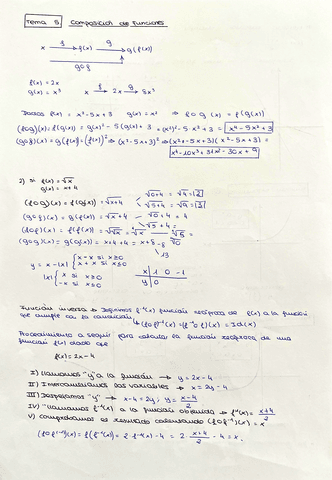 Tema 5 Composición de funciones
x f f(x) g g(f(x))
gof
f(x) = 2x
g(x) = x³ x f 2x g 8x³
Dados f(x) = x²-5x+3 g(x) = x² ⇒ fog(x) = f(g(x))
(fog)(x) = f(g(x)) = g(x)² - 5(g(x)) + 3 = (x²)² - 5·x² + 3 = x⁴ - 5x² + 3
(gof)(x) = g(f(x)) = (f(x))² ⇒ (x²-5x+3)² ⇒ (x²-5x+3)(x²-5x+3) =
x⁴-10x³+31x²-30x+9
2) si f(x) = √x
g(x) = x+4
(fog)(x) = f(g(x)) = √x+4 √0+4 = √4 = 2
√5+4 = √9 = 3
(gof)(x) = g(f(x)) = √x + 4 √0 + 4 = 4
√5 + 4 =
(fof)(x) = f(f(x)) = √√x = ⁴√x ⁴√5 =
(gog)(x) = g(g(x)) = x+4+4 = x+8 - 8 ⁴√0
13
y = x-|x| { x-x si x≥0
x+x si x≤0
|x| { x si x≥0
-x si x≤0
x 1 0 -1
y 0
Función inversa → Definimos f⁻¹(x) función recíproca de f(x) a la función
que cumple ca la condición
(fof⁻¹)(x) = (f⁻¹of)(x) = Id(x)
Procedimiento a seguir para calcular la función recíproca de una
función f(x) dada que
f(x) = 2x-4
I) llamamos "y" a la función → y = 2x-4
II) Intercambiamos las variables → x = 2y-4
III) Despejamos "y" → x-4 = 2y; y = x-4/2
IV) "llamamos f⁻¹(x) a la función obtenida → f⁻¹(x) = x+4/2
V) comprobamos el resultado calculando (fof⁻¹)(x) = x
(fof⁻¹)(x) = f(f⁻¹(x)) = 2·f⁻¹(x) - 4 = 2· x+4/2 - 4 = x.